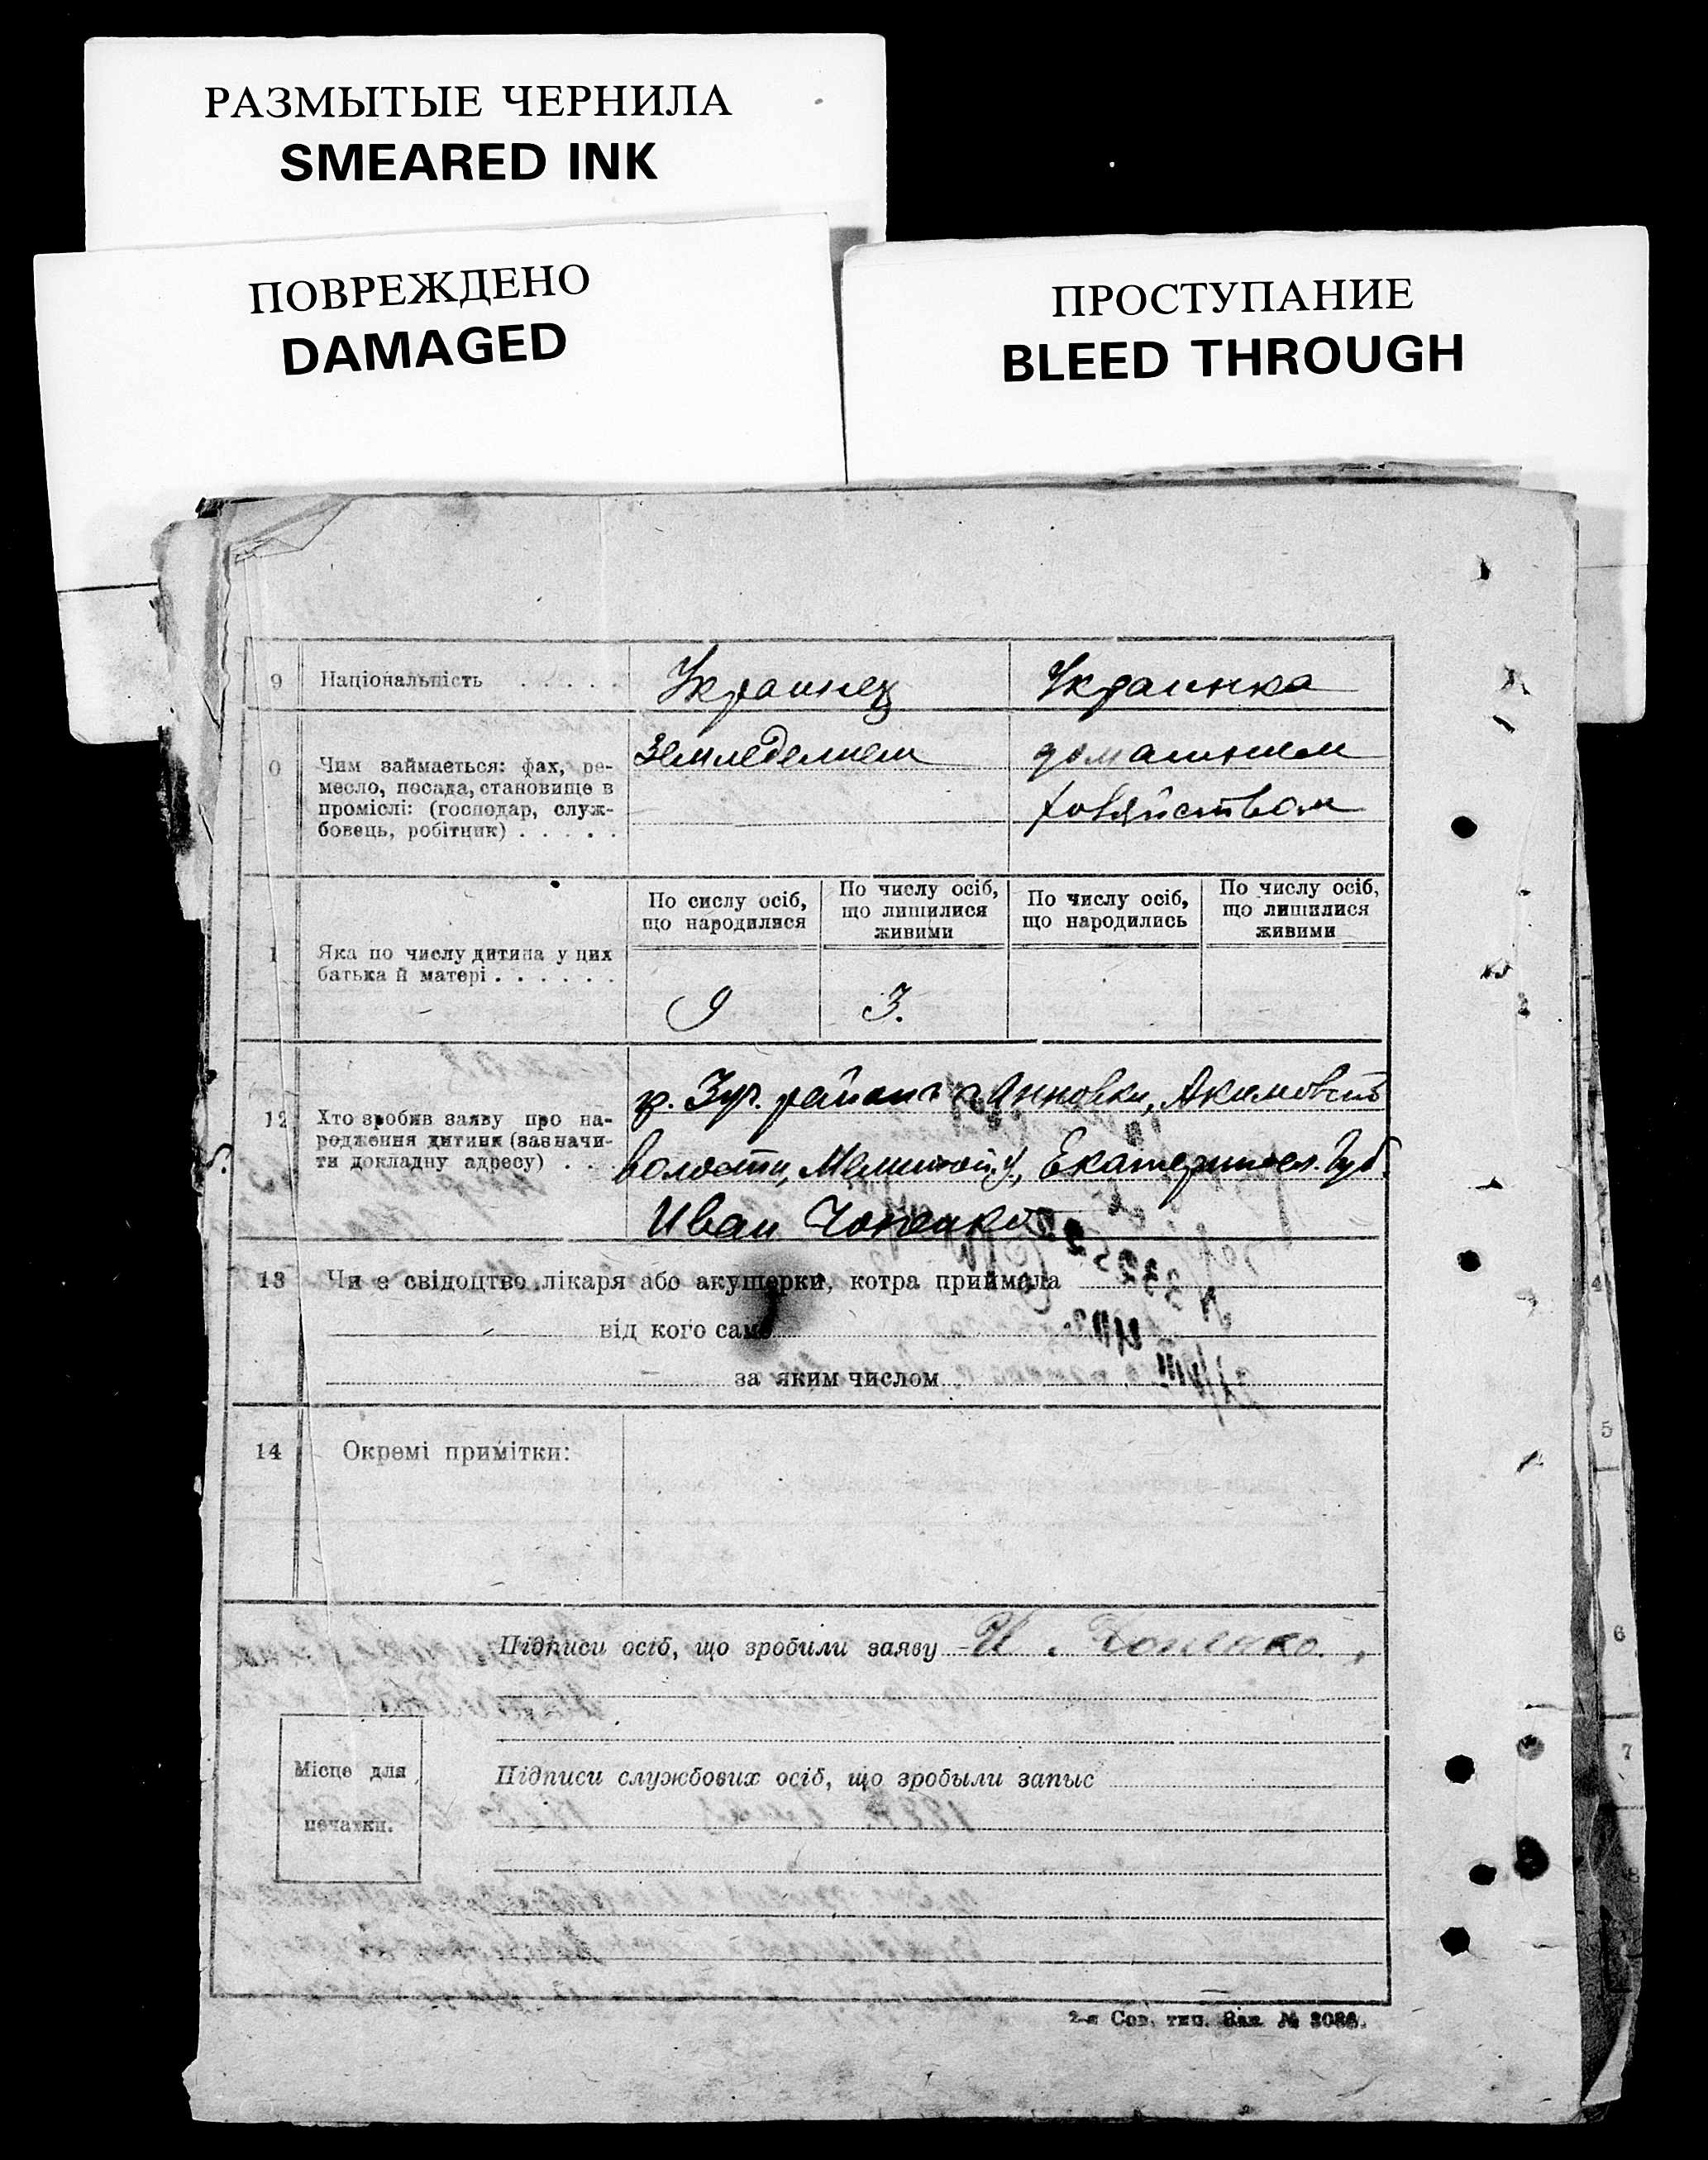 РАЗМЫТЫЕ ЧЕРНИЛА
SMEARED INK
ПОВРЕЖДЕНО
DAMAGED
ПРОСТУПАНИЕ
BLEED THROUGH
9 Національність . . . . . Украинец Украинка
0 Чим займається: фах, ре-
месло, посада, становище в
проміслі: (господар, служ-
бовець, робітник) . . . . .
Земледелием
домашним
хозяйством
По сислу осіб,
що народилися
По числу осіб,
що лишилися
живими
По числу осіб,
що народились
По числу осіб,
що лишилися
живими
1 Яка по числу дитина у цих
батька й матері . . . . . .
9 3.
12 Хто зробив заяву про на-
родження дитини (зазначи-
ти докладну адресу) . . .
района Анновки, Акимовской
волости, Мелитоп. у, Екатериносл. Губ.
Иван
13 Чи є свідоцтво лікаря або акушерки, котра приймала
від кого саме
за яким числом
14 Окремі примітки:
Підписи осіб, що зробили заяву И.
Місце для
печатки.
Підписи службових осіб, що зробыли запыс
2-я Сов. тип. Зак. № 3086.
4
5
6
7
8